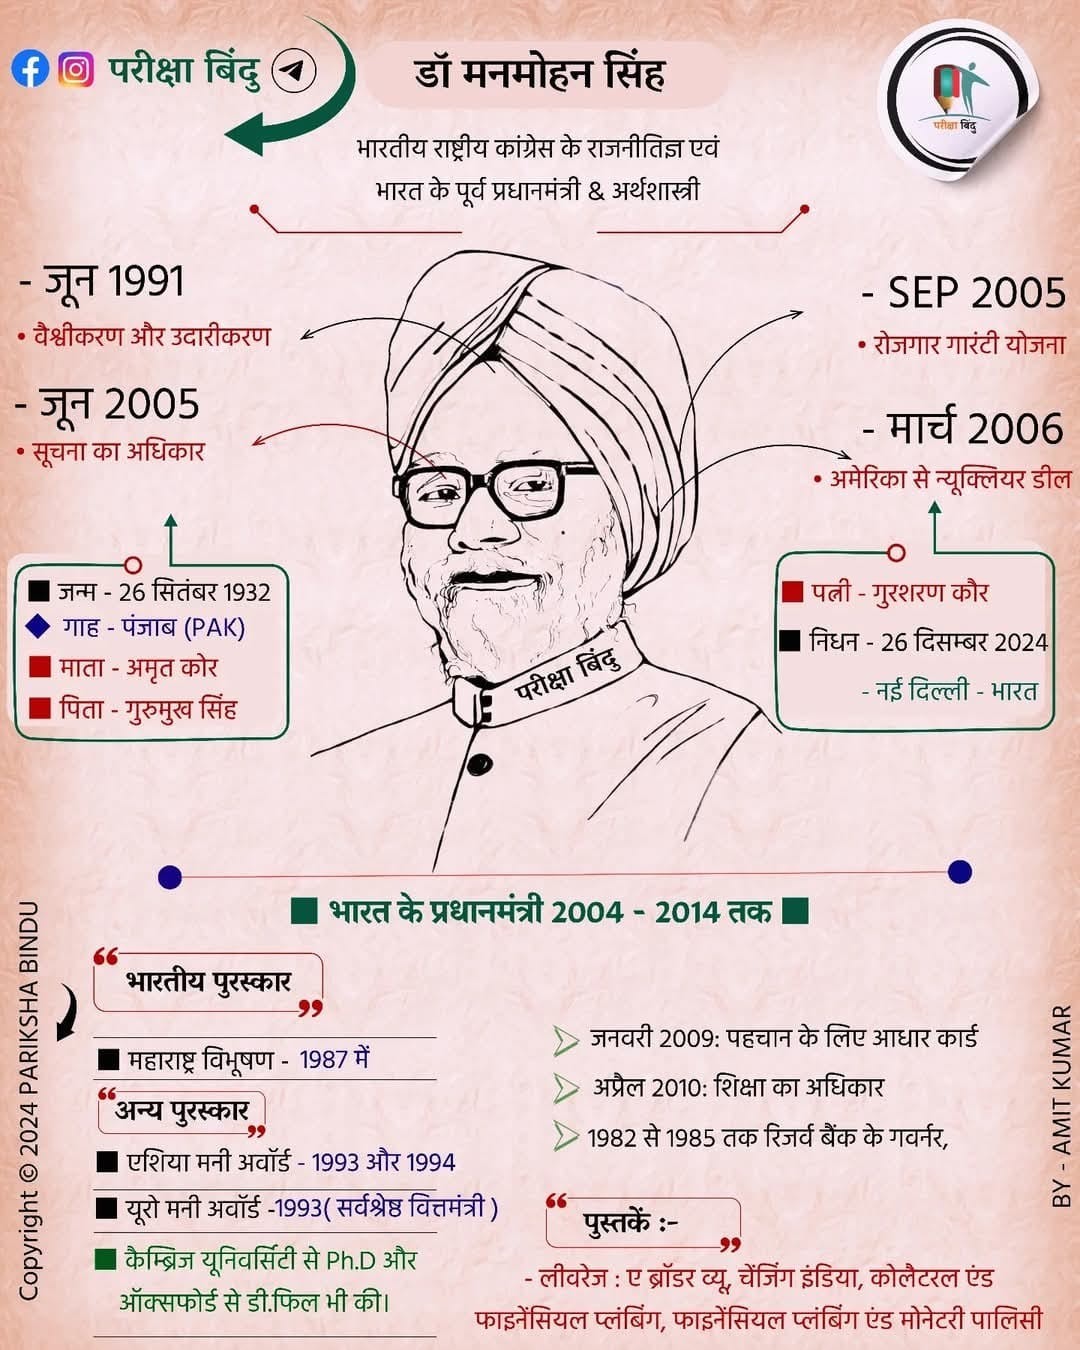 परीक्षा बिंदु
डॉ मनमोहन सिंह
परीक्षा बिंदु
भारतीय राष्ट्रीय कांग्रेस के राजनीतिज्ञ एवं
भारत के पूर्व प्रधानमंत्री & अर्थशास्त्री
- जून 1991
• वैश्वीकरण और उदारीकरण
- जून 2005
• सूचना का अधिकार
- SEP 2005
• रोजगार गारंटी योजना
- मार्च 2006
• अमेरिका से न्यूक्लियर डील
■ जन्म - 26 सितंबर 1932
◆ गाह - पंजाब (PAK)
■ माता - अमृत कोर
■ पिता - गुरुमुख सिंह
■ पत्नी - गुरशरण कौर
■ निधन - 26 दिसम्बर 2024
- नई दिल्ली - भारत
परीक्षा बिंदु
■ भारत के प्रधानमंत्री 2004 - 2014 तक ■
❝ भारतीय पुरस्कार ❞
■ महाराष्ट्र विभूषण - 1987 में
❝ अन्य पुरस्कार ❞
■ एशिया मनी अवॉर्ड - 1993 और 1994
■ यूरो मनी अवॉर्ड -1993( सर्वश्रेष्ठ वित्तमंत्री )
■ कैम्ब्रिज यूनिवर्सिटी से Ph.D और
ऑक्सफोर्ड से डी.फिल भी की।
जनवरी 2009: पहचान के लिए आधार कार्ड
अप्रैल 2010: शिक्षा का अधिकार
1982 से 1985 तक रिजर्व बैंक के गवर्नर,
❝ पुस्तकें :- ❞
- लीवरेज : ए ब्रॉडर व्यू, चेंजिंग इंडिया, कोलैटरल एंड
फाइनेंसियल प्लंबिंग, फाइनेंसियल प्लंबिंग एंड मोनेटरी पालिसी
Copyright © 2024 PARIKSHA BINDU
BY - AMIT KUMAR